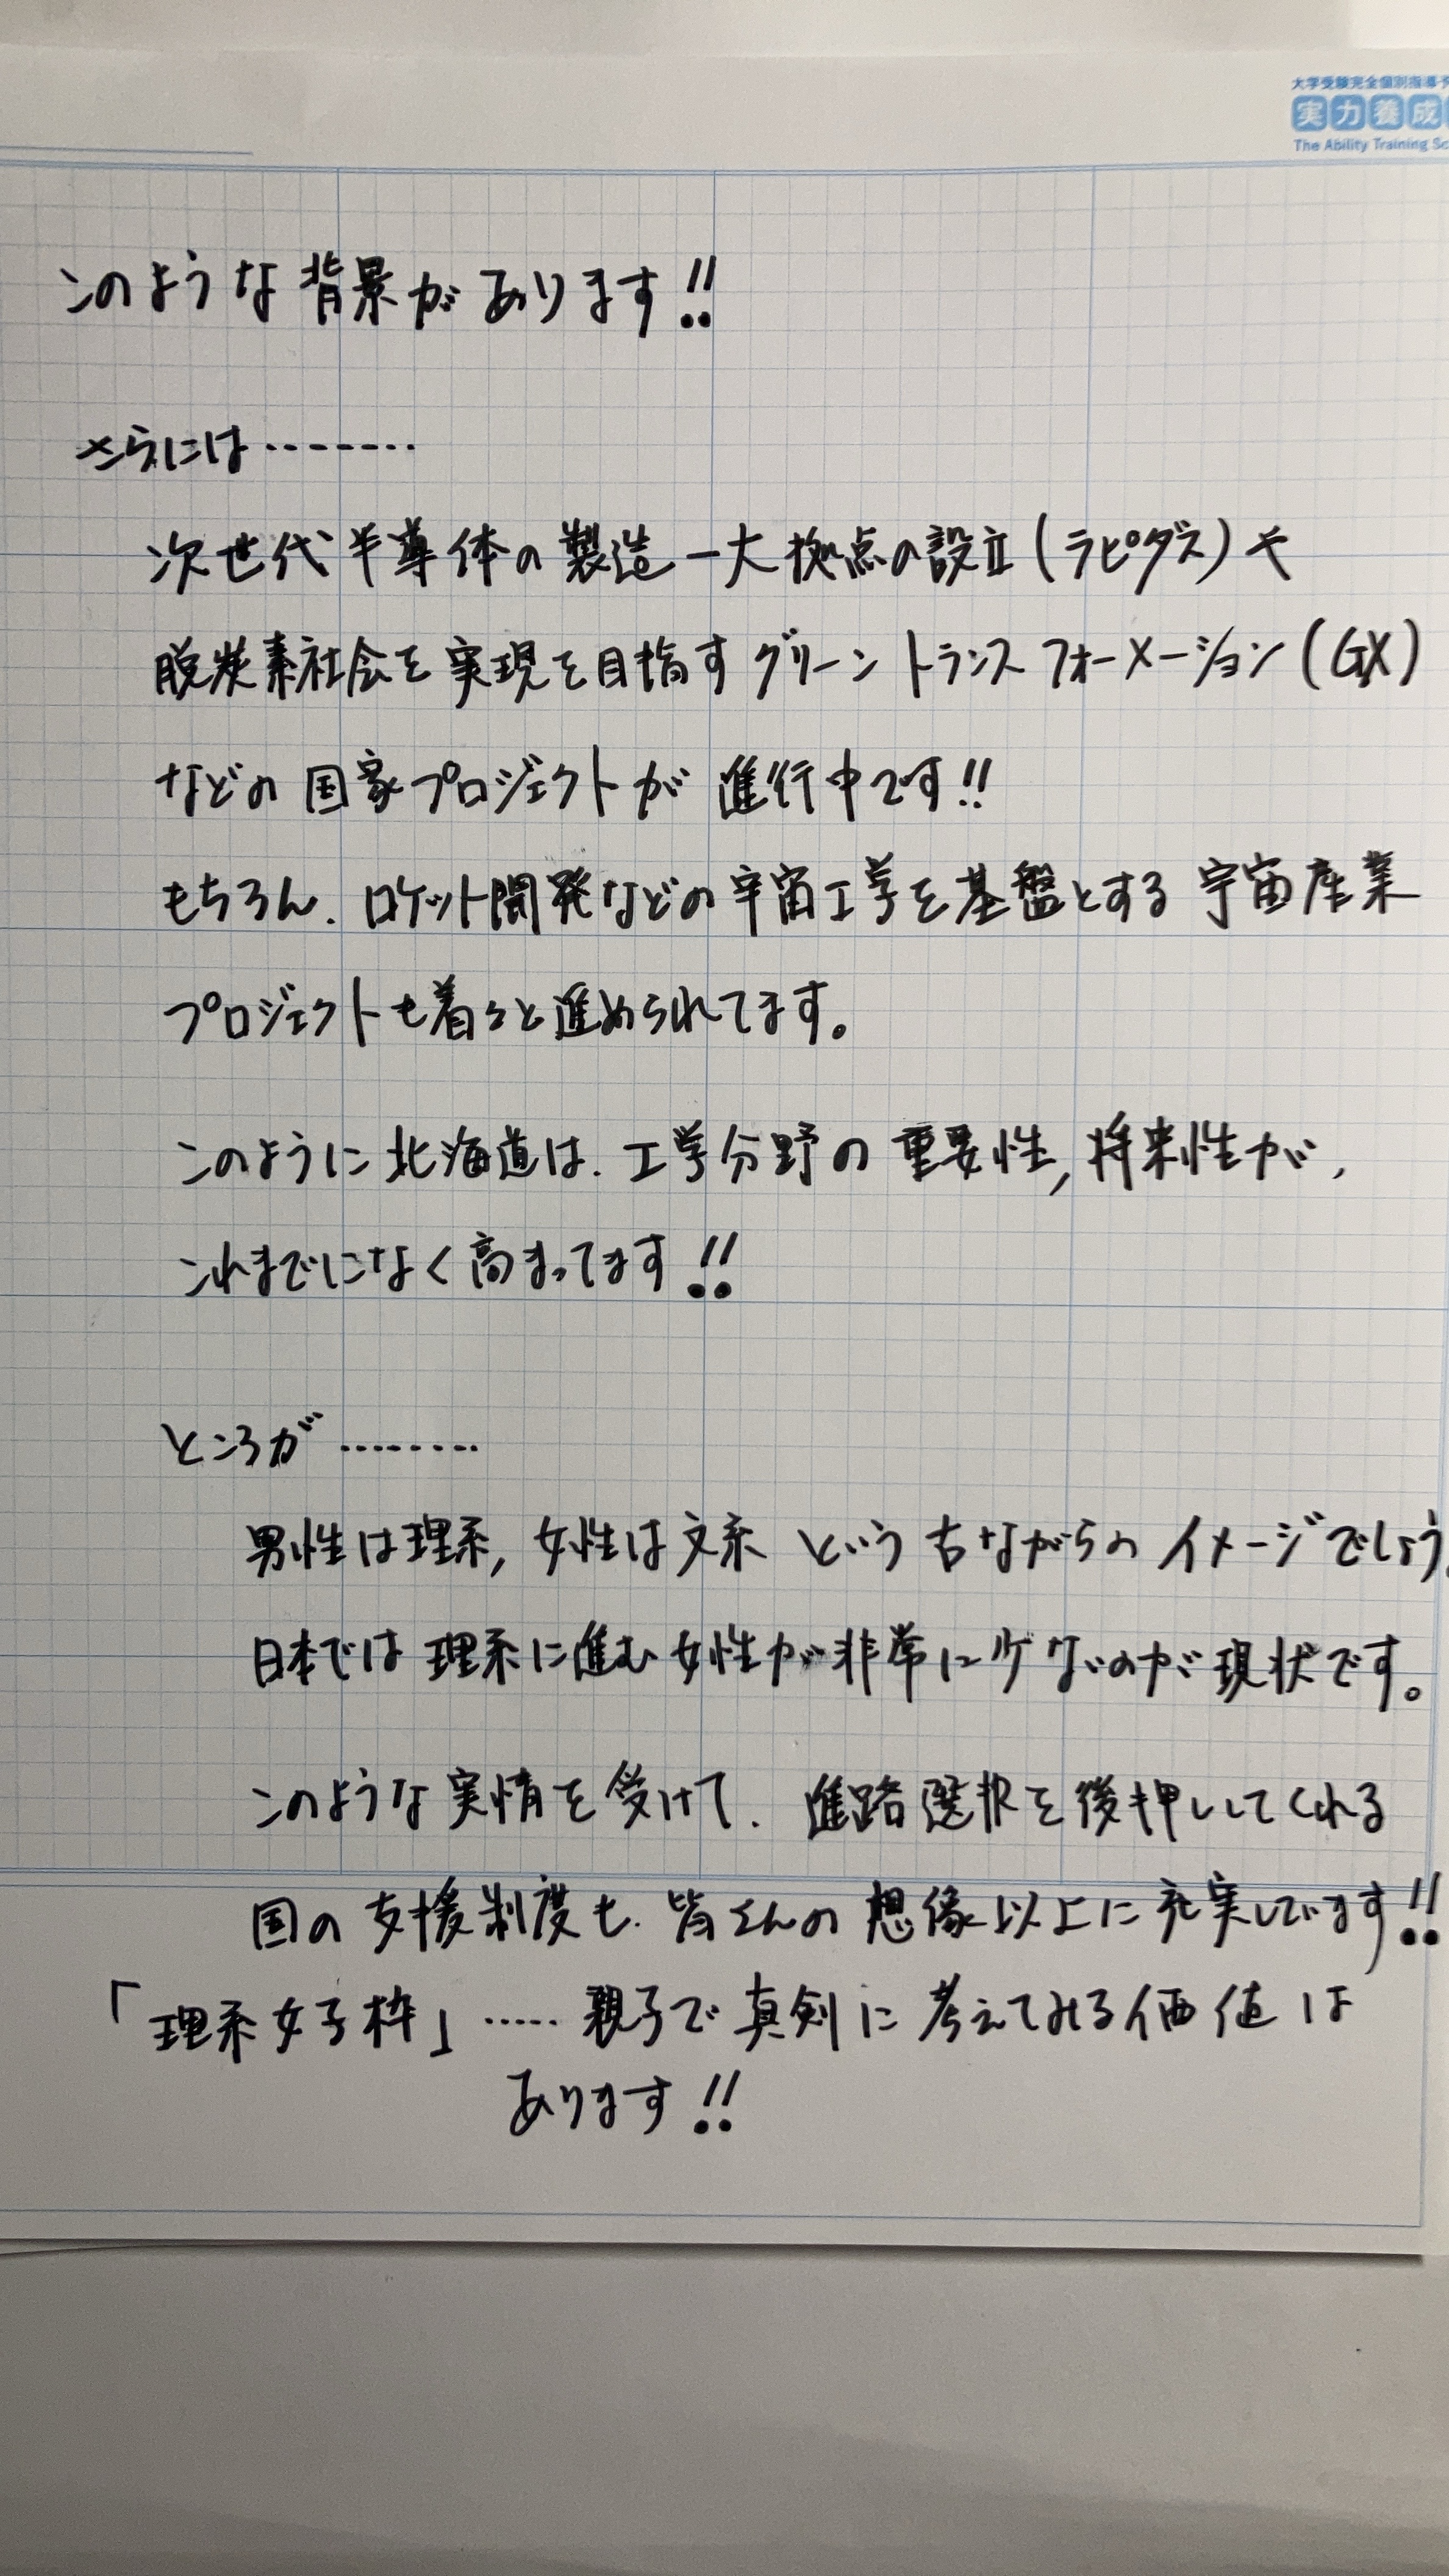 大学受験完全個別指導予
実力養成
The Ability Training Sc
このような背景があります!!
さらには‥‥‥‥
次世代半導体の製造一大拠点の設立(ラピダス)や
脱炭素社会を実現を目指すグリーントランスフォーメーション(GX)
などの国家プロジェクトが進行中です!!
もちろん、ロケット開発などの宇宙工学を基盤とする宇宙産業
プロジェクトも着々と進められてます。
このように北海道は、工学分野の重要性,将来性が,
これまでになく高まってます!!
ところが‥‥‥‥
男性は理系,女性は文系という古ながらのイメージでしょう。
日本では理系に進む女性が非常に少ないのが現状です。
このような実情を受けて、進路選択を後押ししてくれる
国の支援制度も、皆さんの想像以上に充実しています!!
「理系女子枠」‥‥‥親子で真剣に考えてみる価値は
あります!!